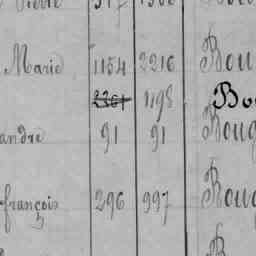 Marie 1154 2216 Bou
2261 1195 Bo
andre 91 91 Boug
françois 296 997 Boug